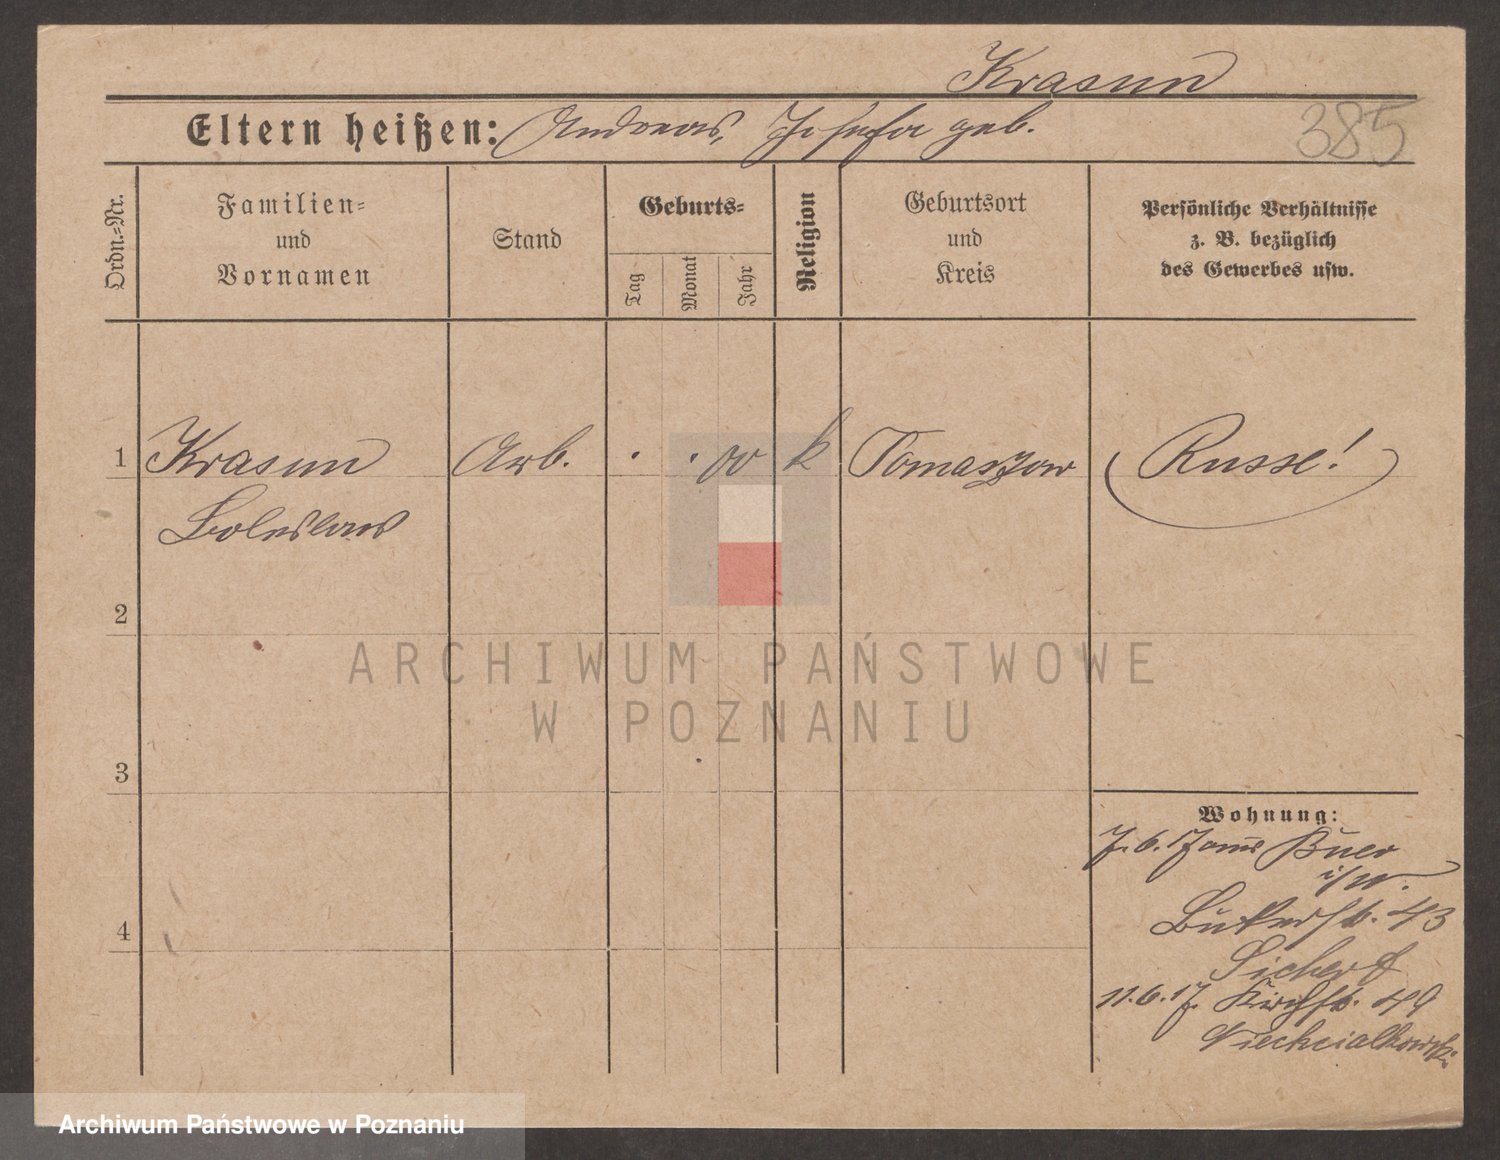 Krasun
Eltern heißen: Andreas, Josefa geb.
385
Ordn.-Nr.
Familien-
und
Vornamen
Stand
Geburts-
Tag
Monat
Jahr
Religion
Geburtsort
und
Kreis
Persönliche Verhältnisse
z. B. bezüglich
des Gewerbes usw.
1 Krasun Arb. . . 00 k Tomaszow Russe!
Boleslaus
2
ARCHIWUM PAŃSTWOWE
W POZNANIU
3
Wohnung:
7.6.17 aus Buer
i/W.
4 43
11.6.17. Kirchstr. 49
Archiwum Państwowe w Poznaniu